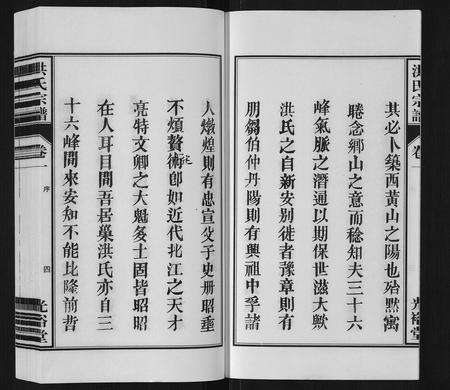 洪氏宗譜
卷一
光裕堂
其必卜築西黃山之陽也殆默寓
睠念鄉山之意而稔知夫三十六
峰氣脈之潛通以期保世滋大歟
洪氏之自新安別徙者豫章則有
朋芻伯仲丹陽則有興祖中孚諸
人燉煌則有忠宣父子史冊昭垂
不煩贅術已卽如近代北江之天才
亮特文卿之大魁多士固皆昭昭
在人耳目間吾居巢洪氏亦自三
十六峰間來安知不能比隆前哲
洪氏宗譜
卷一
序
四
光裕堂